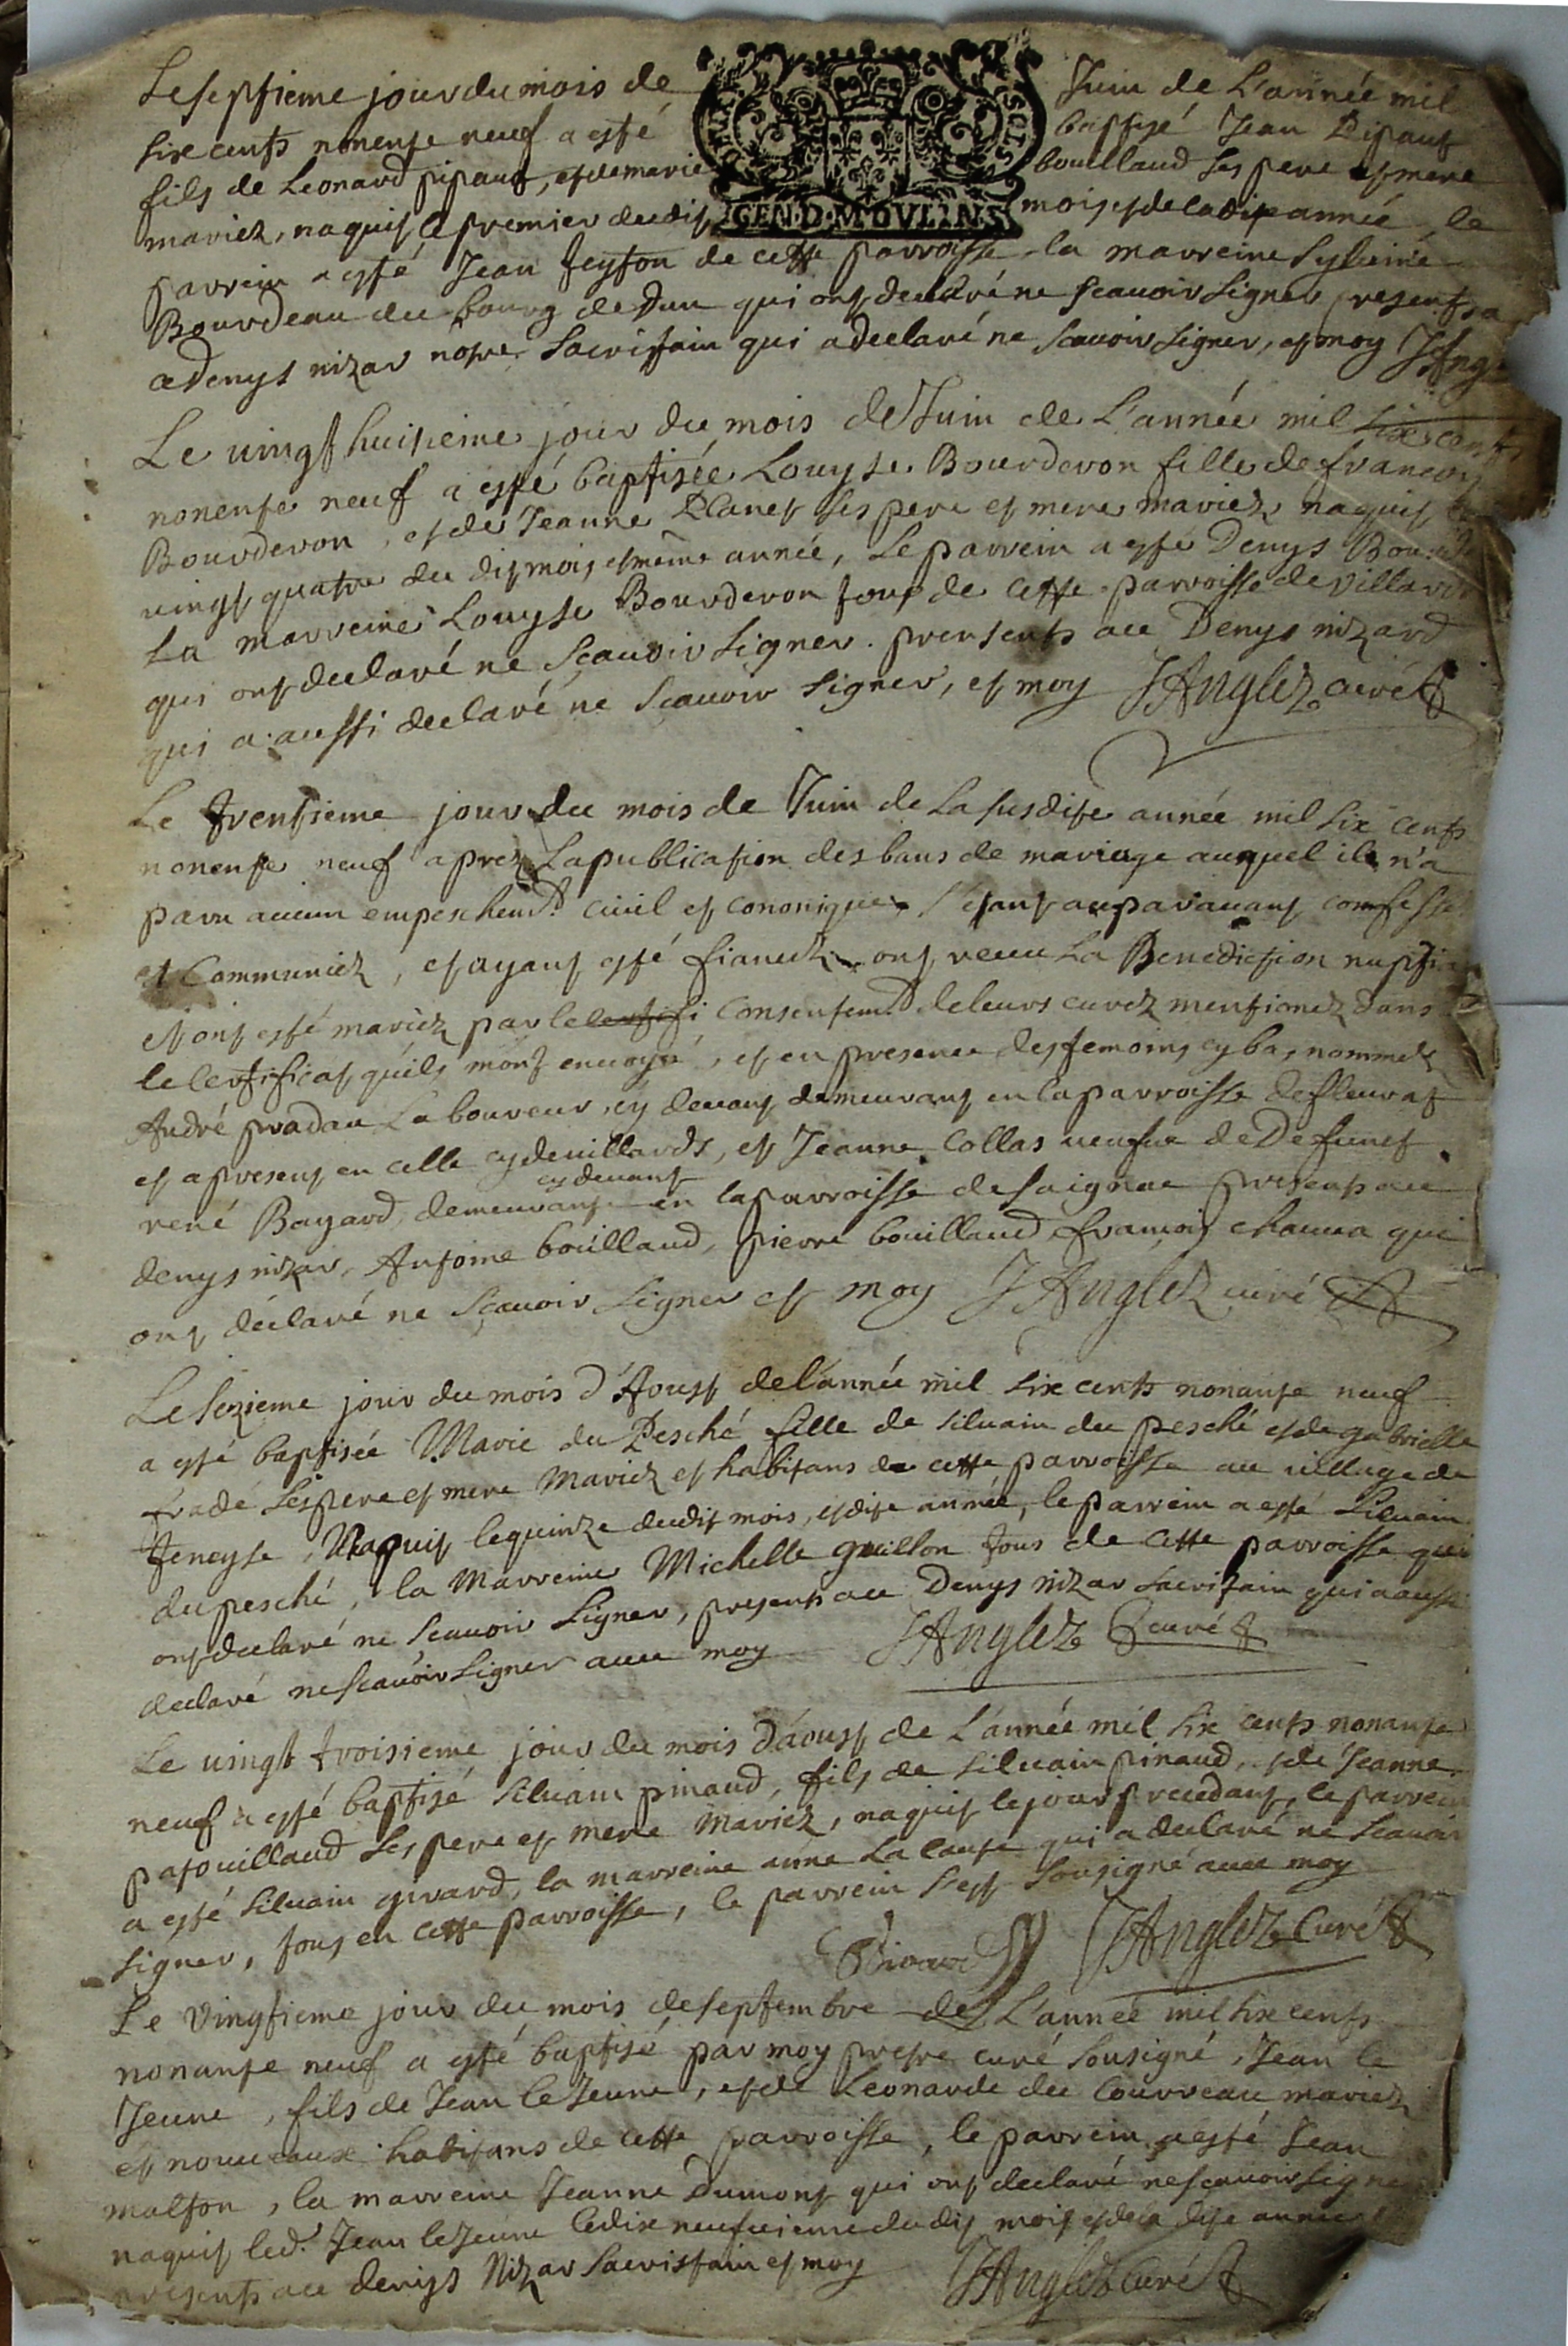 Le septieme jour du mois de Juin de L'année mil
six cents nonente neuf a esté baptisé Jean Pipaut
fils de Leonard pipaut, et de marie bouillaud ses pere et mere
GEN·D·MOVLINS
mariez, naquit le premier dudit mois et de ladite année, le
parrein a esté Jean teyton de cette parroisse la marreine Sylvine
Bourdeau du bourg de Dun qui ont declaré ne scauoir signer, presents a
ce Denys nizar notre Sacristain qui a declaré ne scauoir signer, et moy JAng
Le uingt huitieme jour du mois de Juin de L'année mil six cents
nonente neuf a esté baptisée Louyse Bourderon fille de francoy
Bourderon, et de Jeanne Planet ses pere et mere mariez naquit le
uingt quatre du dit mois et même année, Le parrein a esté Denys Bourde
La marreine Louyse Bourderon tous de cette parroisse de Villard
qui ont declaré ne scauoir signer. presents a ce Denys nizard
qui a aussi declaré ne scauoir signer, et moy JAnglez curé
Le trentieme jour du mois de Juin de La susdite année mil six cents
nonente neuf aprez La publication des bans de mariage auquel il n'a
paru aucun empeschemt. ciuil et cononique, s'etant auparauant confesse
et Communiez, et ayant esté fiancez ont receu La Benediction nuptia
et ont esté mariez par le certifi consentemt. de leurs curez mentionez dans
le Certificat qu'ils m'ont enuoyé, et en presence des temoins cy bas nommez
André pradau Laboureur, cy deuant demeurant en la parroisse de fleurat
et a present en celle cy de uillards, et Jeanne Collas ueufue de Defunct
cy deuant
rené Bayard, demeurante en la parroisse de saignac presents a ce
denys nizar, Antoine boüillaud, pierre bouillaud francois chauua qui
ont déclaré ne scauoir signer et moy JAnglez curé
Le sezieme jour du mois d'Aoust de l'année mil six cents nonante neuf
a esté baptisée Marie du Pesché fille de siluain du pesché et de gabrielle
fradé ses pere et mere Mariez et habitans de cette parroisse au uillage de
teneyse, Naquit le quinze dudit mois, et dite année, le parrein a esté Siluain
du pesché, la Marreine Michelle guillon tous de cette parroisse qui
ont declaré ne scauoir signer, presents a ce Denys nizar sacristain qui a aussi
declaré ne scauoir signer auec moy JAnglez curé
Le uingt troisieme jour du mois d'aoust de L'année mil six cents nonante
neuf a esté baptisé siluain pinaud, fils de siluain pinaud, et de Jeanne
patouillaud ses pere et mere Mariez, naquit le jour precedant, le parrein
a esté siluain girard, la marreine anne La lante qui a declaré ne scauoir
signer, tous en cette parroisse, le parrein s'est sousigné auec moy
JAnglez Curé
Le vingtieme jour du mois de septembre de L'année mil six cents
nonante neuf a esté baptisé par moy pretre curé sousigné, Jean le
Jeune, fils de Jean le Jeune, et de Leonarde du Courreau mariez
et nouueaux habitans de cette parroisse, le parrein a esté Jean
malton, la marreine Jeanne Dumont qui ont declaré ne scauoir signe
naquit led. Jean le Jeune le dix neufuieme du dit mois et de la dite année
presents a ce denys Nizar Sacristain et moy JAnglez curé